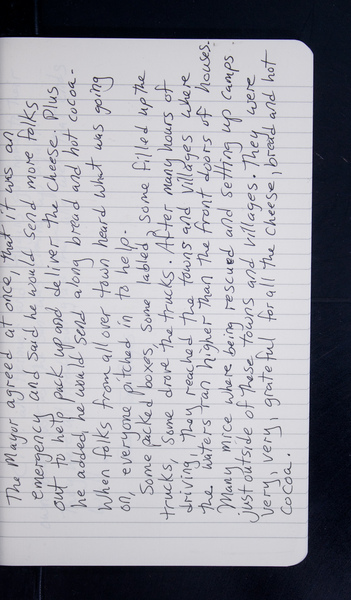 The Mayor agreed at once, that it was an
emergency and said he would send more folks
out to help pack up and deliver the cheese. Plus
he added, he would send along bread and hot cocoa.
When folks from all over town heard what was going
on, everyone pitched in to help.
Some packed boxes. Some labled, some filled up the
trucks, Some drove the trucks. After many hours of
driving, they reached the towns and villages where
the waters ran higher than the front doors of houses.
Many mice where being rescued and setting up camps
just outside of these towns and villages. They were
very, very grateful for all the cheese, bread and hot
cocoa.